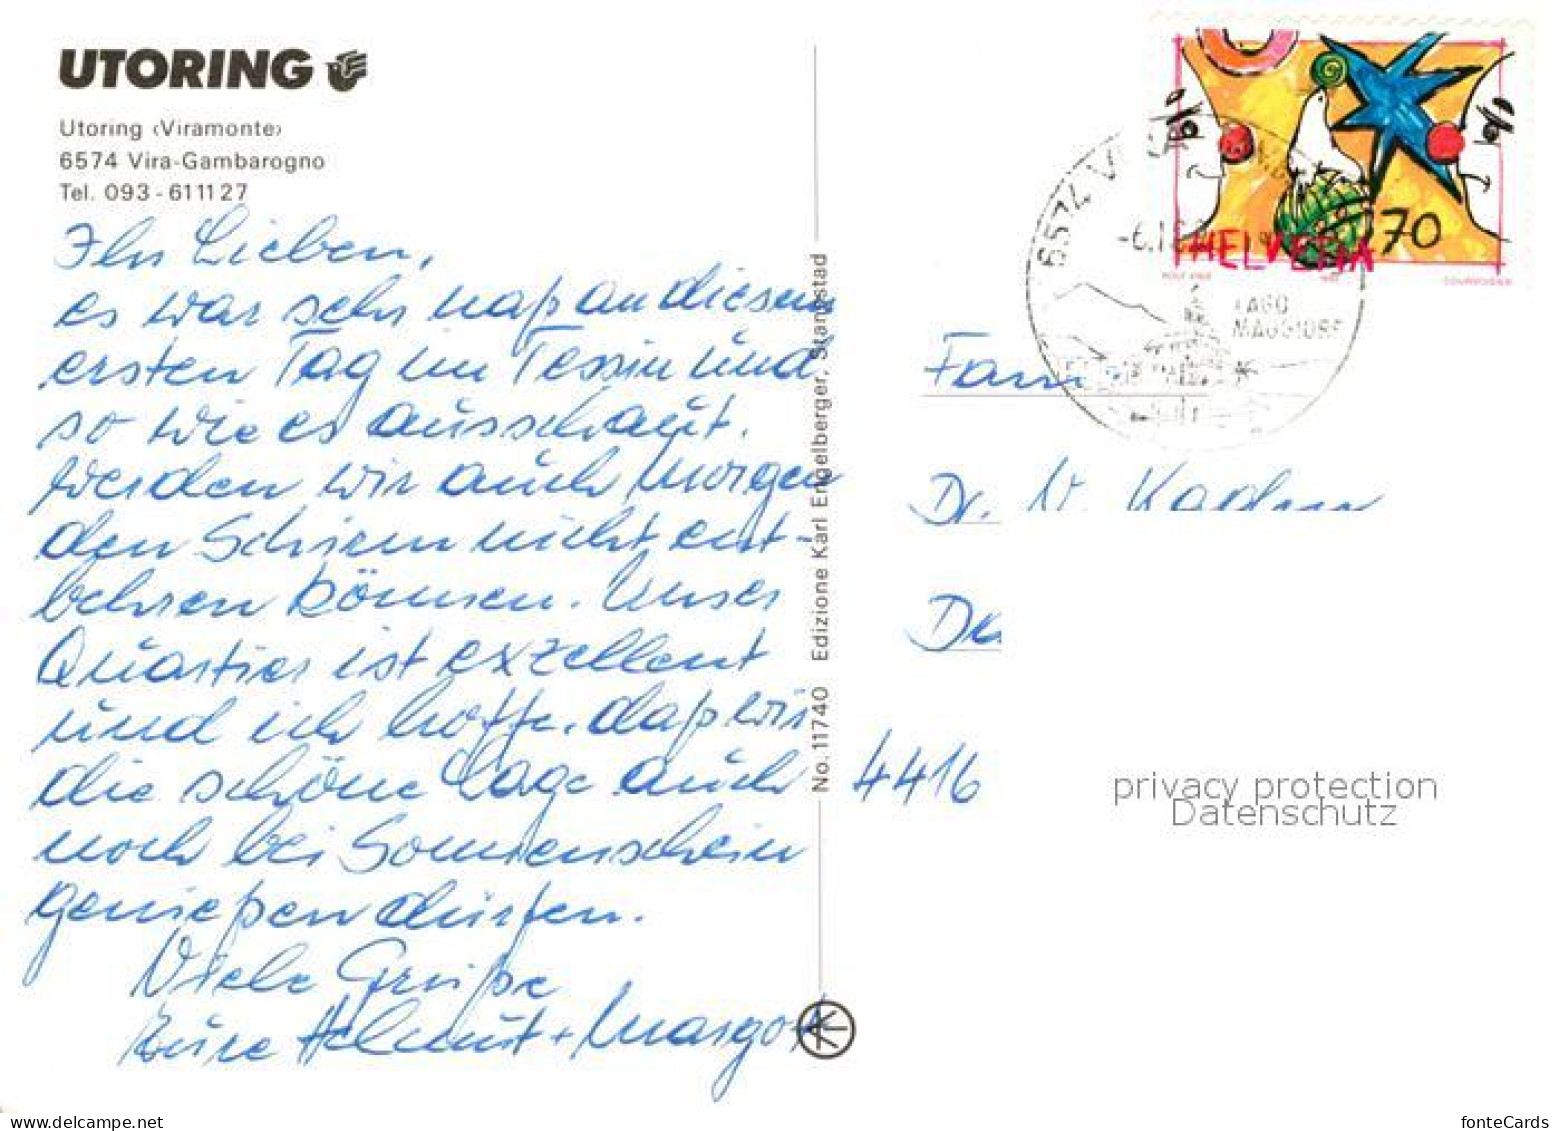 UTORING
Utoring ‹Viramonte›
6574 Vira-Gambarogno
Tel. 093-611127
Ihr Lieben,
es war sehr naß an diesem
ersten Tag im Tessin und
so wie es ausschaut.
werden wir auch morgen
den Schirm nicht ent-
behren können. Unser
Quartier ist exzellent
und ich hoffe, daß wir
die schöne Lage auch
noch bei Sonnenschein
genießen dürfen.
Viele Grüße
Eure Helmut + Margot
No. 11740 Edizione Karl Engelberger, Stansstad
HELVETIA 70
COURVOISIER
6574 VIRA
LAGO
MAGGIORE
Fam
Dr.
4416
privacy protection
Datenschutz
your own online store
fonteCards